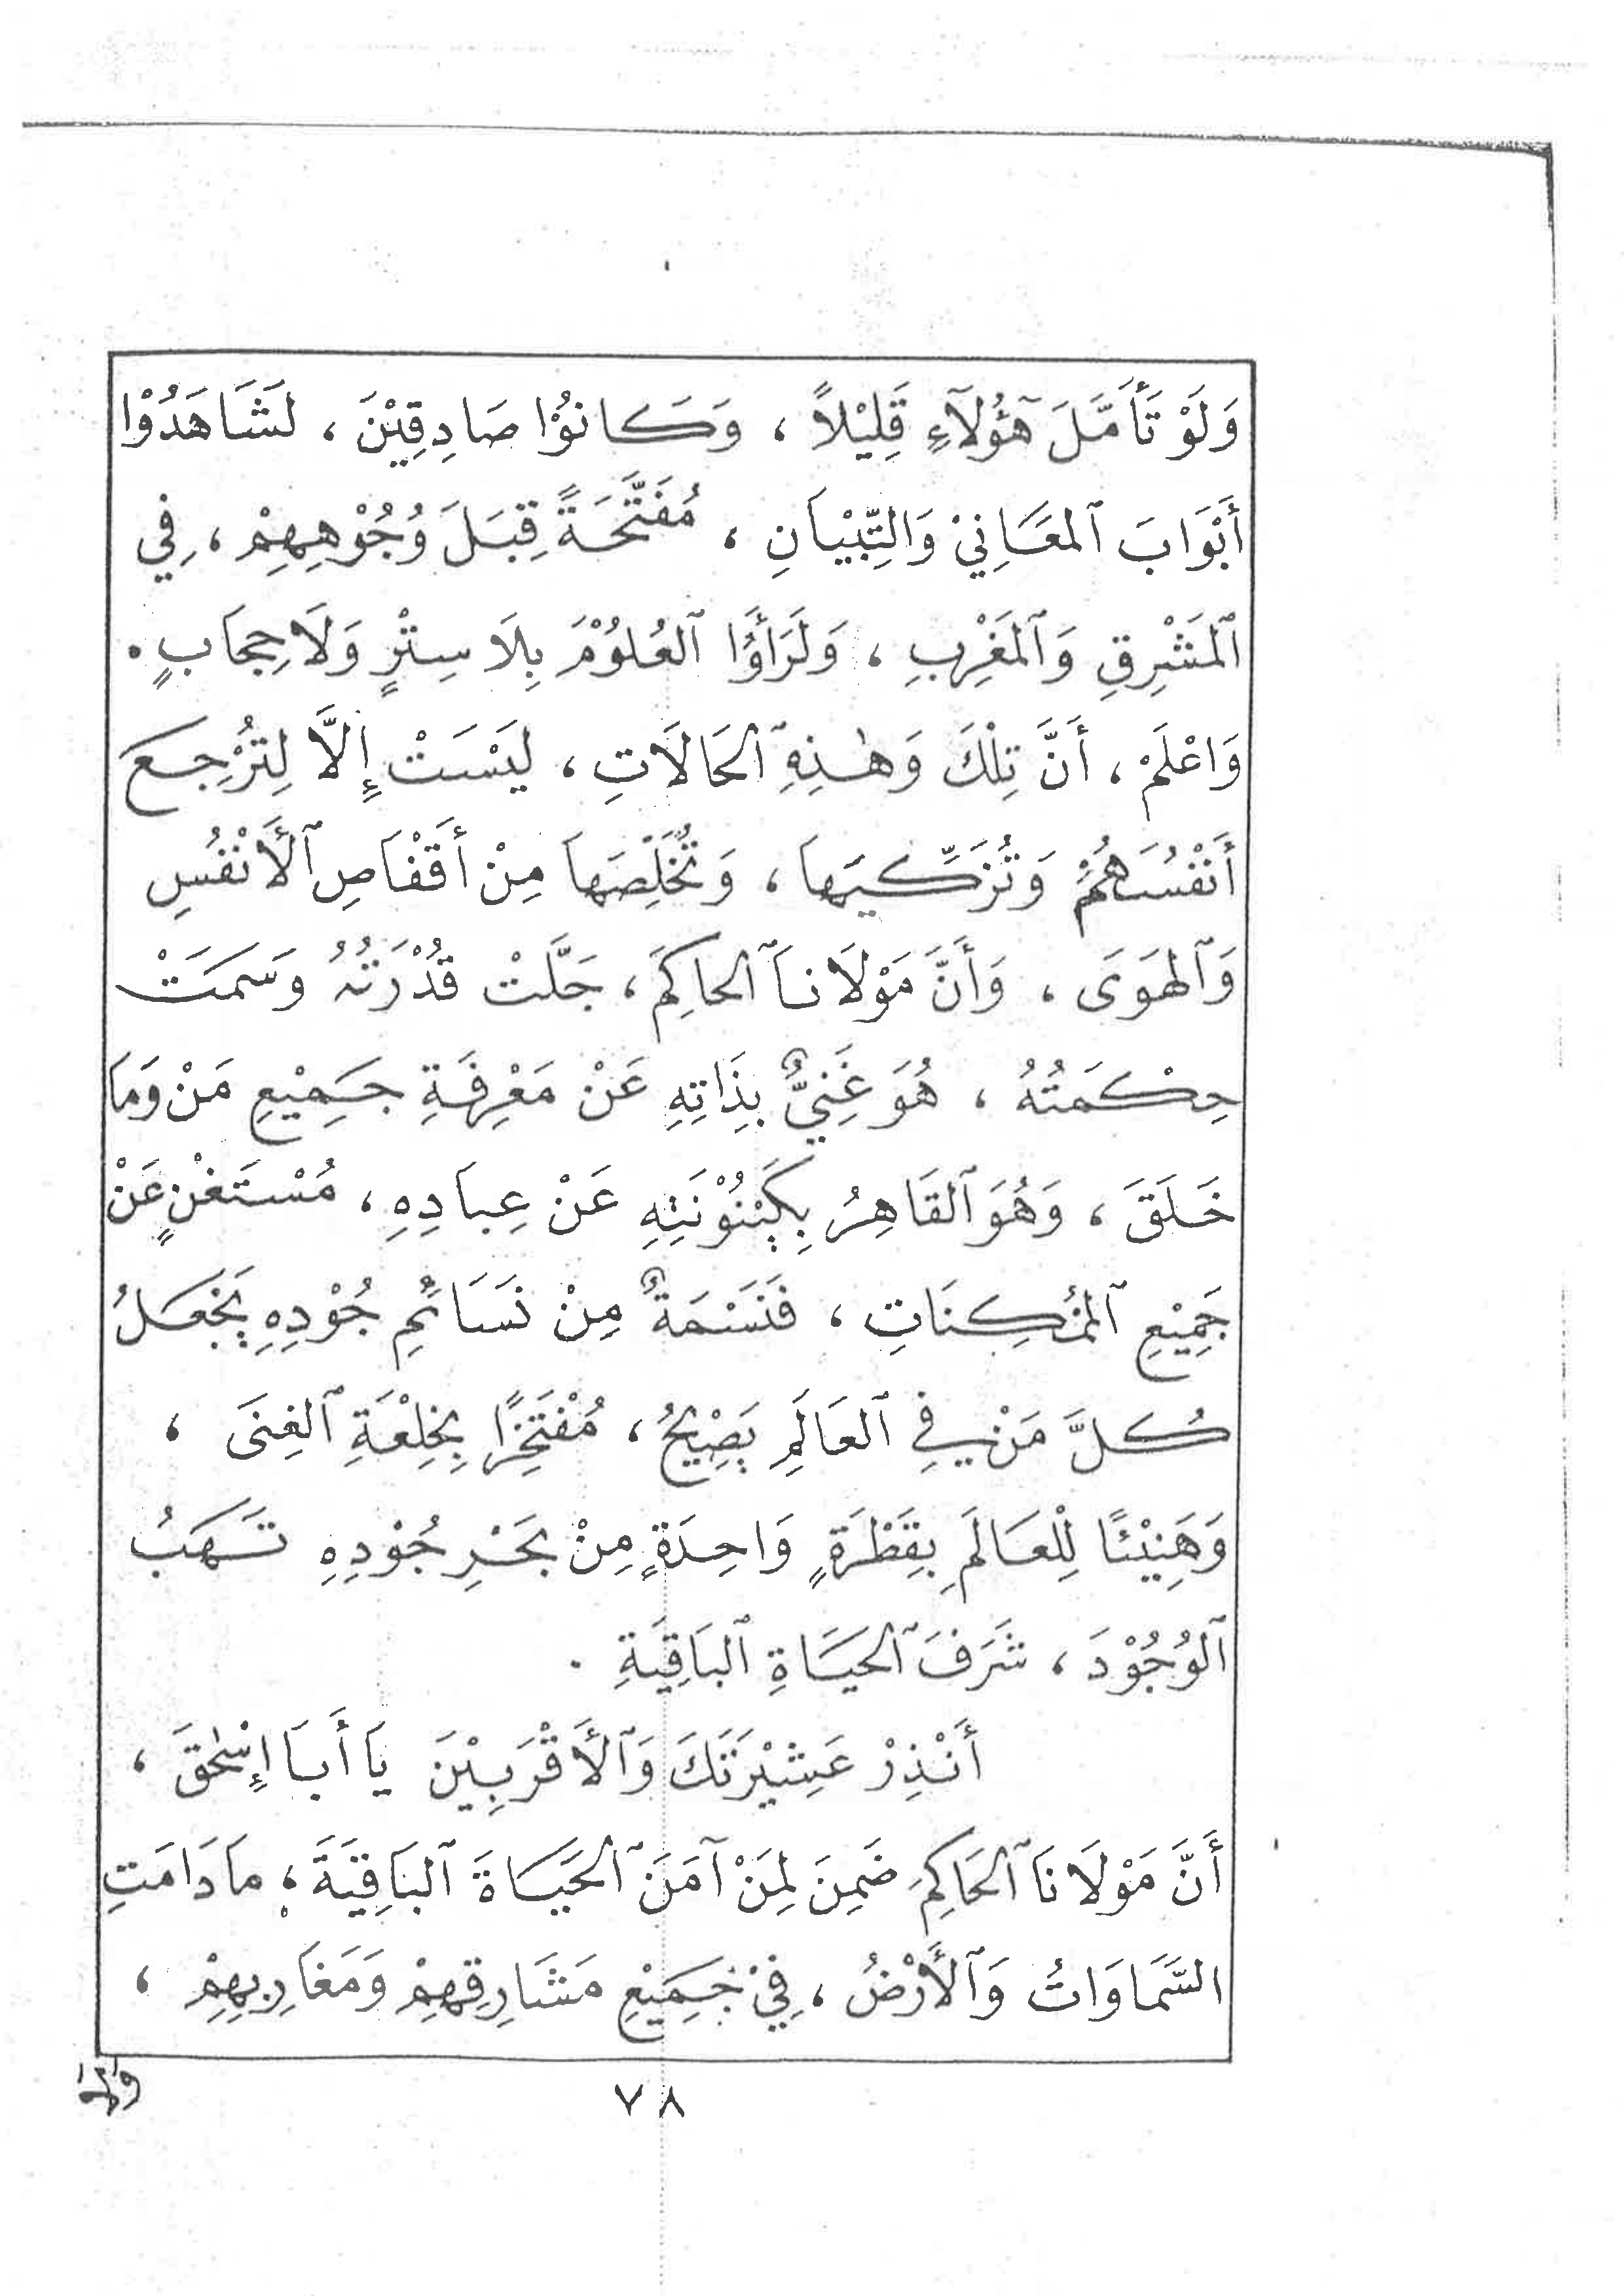 وَلَوْ تَأَمَّلَ هَٓؤُلَآءِ قَلِيْلاً ، وَكَانُوْا صَادِقِيْنَ ، لَشَاهَدُوْا
أَبْوَابَ ٱلمَعَانِيْ وَالتِّبْيَانِ ، مُفَتَّحَةً قِبَلَ وُجُوْهِهِمْ ، فِي
ٱلمَشْرِقِ وَٱلمَغْرِبِ ، وَلَرَأَوُا ٱلعُلُوْمَ بِلَا سِتْرٍ وَلَا حِجَابٍ .
وَاعْلَمْ ، أَنَّ تِلْكَ وَهٰذِهِ ٱلحَالَاتِ ، لَيْسَتْ إِلَّا لِتُرْجِعَ
أَنْفُسَهُمْ وَتُزَكِّيَهَا ، وَتُخَلِّصَهَا مِنْ أَقْفَاصِ ٱلأَنْفُسِ
وَٱلهَوَى ، وَأَنَّ مَوْلَانَا ٱلحاكِمَ ، جَلَّتْ قُدْرَتُهُ وَسَمَتْ
حِكْمَتُهُ ، هُوَ غَنِيٌّ بِذَاتِهِ عَنْ مَعْرِفَةِ جَمِيْعِ مَنْ وَمَا
خَلَقَ ، وَهُوَ ٱلقَاهِرُ بِكَيْنُوْنَتِهِ عَنْ عِبَادِهِ ، مُسْتَغْنٍ عَنْ
جَمِيْعِ ٱلمُمْكِنَاتِ ، فَنَسْمَةٌ مِنْ نَسَائِمِ جُوْدِهِ تَجْعَلُ
كُلَّ مَنْ فِي ٱلعَالَمِ يَصِيْحُ ، مُفْتَخِرًا بِخِلْعَةِ ٱلغِنَى ،
وَهَنِيْئًا لِلْعَالَمِ بِقَطْرَةٍ وَاحِدَةٍ مِنْ بَحْرِ جُوْدِهِ تَهَبُ
ٱلوُجُوْدَ ، شَرَفَ ٱلحَيَاةِ ٱلبَاقِيَةِ .
أَنْذِرْ عَشِيْرَتَكَ وَٱلأَقْرَبِيْنَ يَا أَبَا إِسْحٰقَ ،
أَنَّ مَوْلَانَا ٱلحَاكِمَ ضَمِنَ لِمَنْ آمَنَ ٱلحَيَاةَ ٱلبَاقِيَةَ ، مَا دَامَتِ
السَّمَاوَاتُ وَٱلأَرْضُ ، فِيْ جَمِيْعِ مَشَارِقِهِمْ وَمَغَارِبِهِمْ ،
٧٨